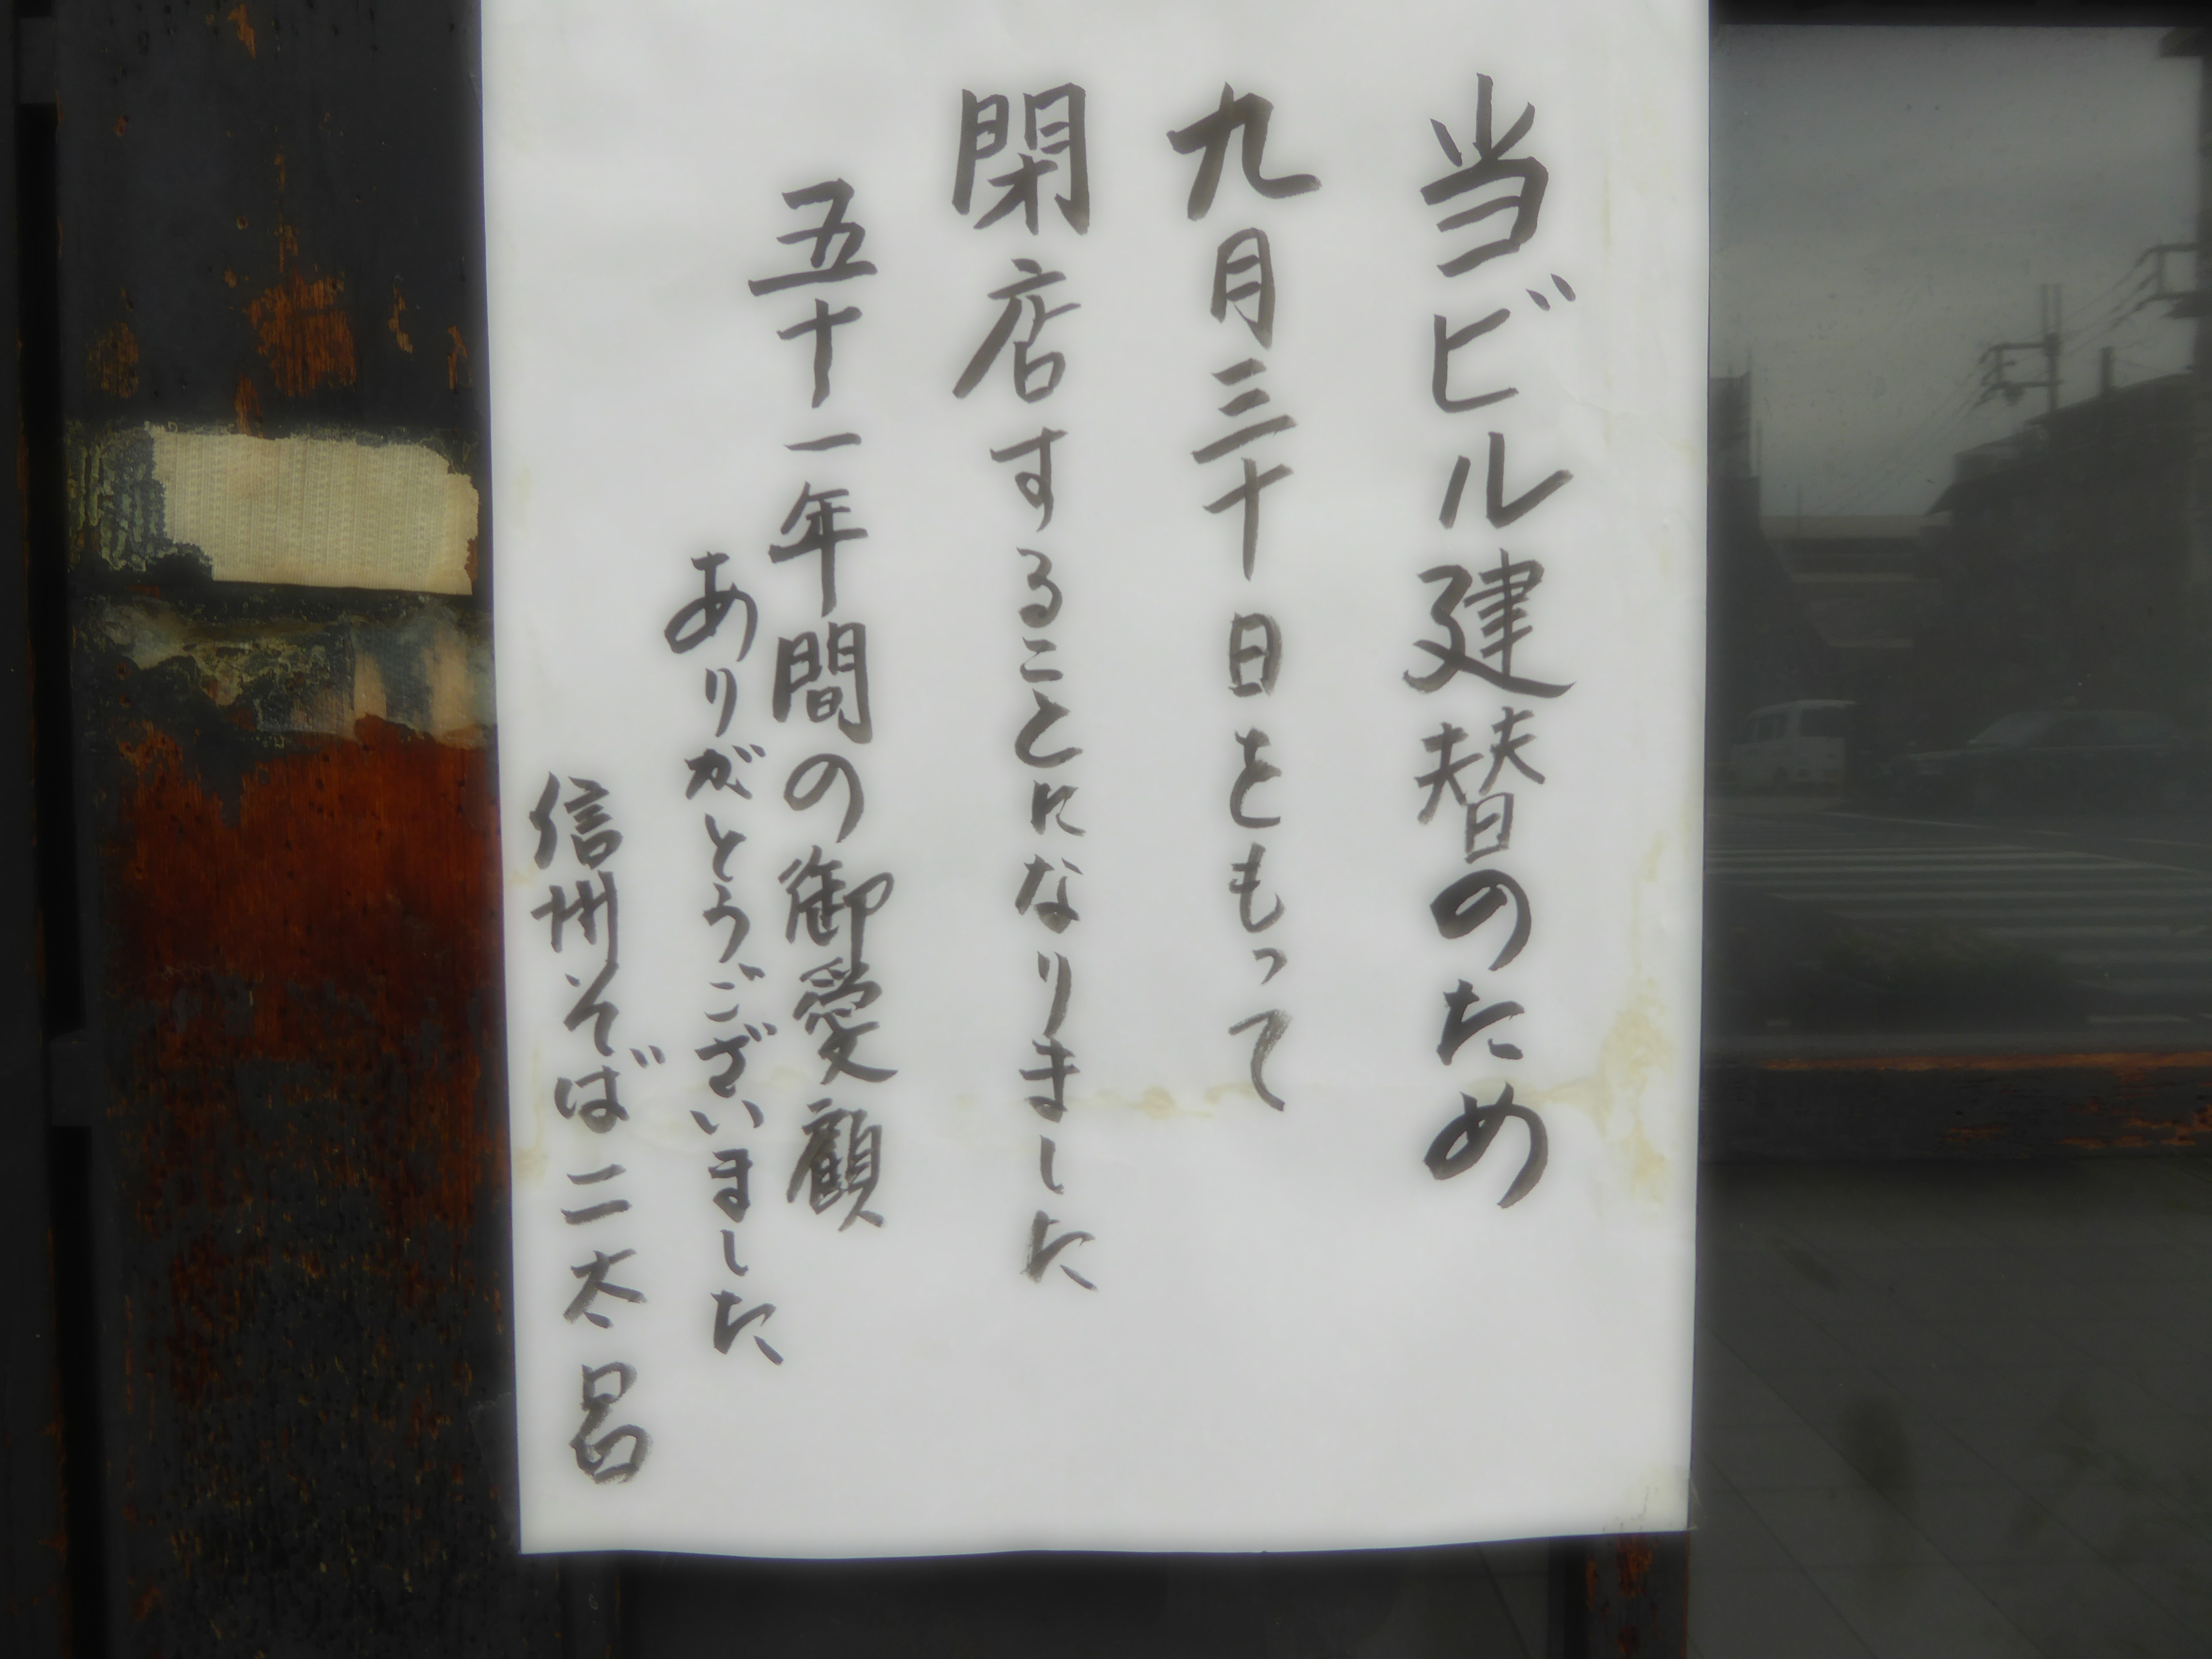 当ビル建替のため
九月三十日をもって
閉店することになりました
五十一年間の御愛顧
ありがとうございました
信州そば二太呂